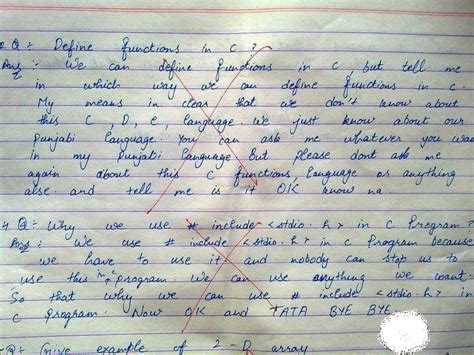 Q:- Define functions in C ?
Ans:- We can define functions in C, but tell me
in which way we can define functions in C.
My means in clear that we don't know about
this C, D, e, language. We just know about our
punjabi language. You can ask me whatever you wan
in my punjabi language but please dont ask me
again about this C functions, language or anything
else. and tell me is it OK know na.
4 Q:- Why we use # include <stdio.h> in C Program?
Ans:- We use # include <stdio.h> in C Program because
we have to use it and nobody can stop us to
use this in C program. We can use anything we want
So that why we can use # include <stdio.h> in
C program. Now OK and TATA BYE BYE
Q:- Give example of 2-D array.